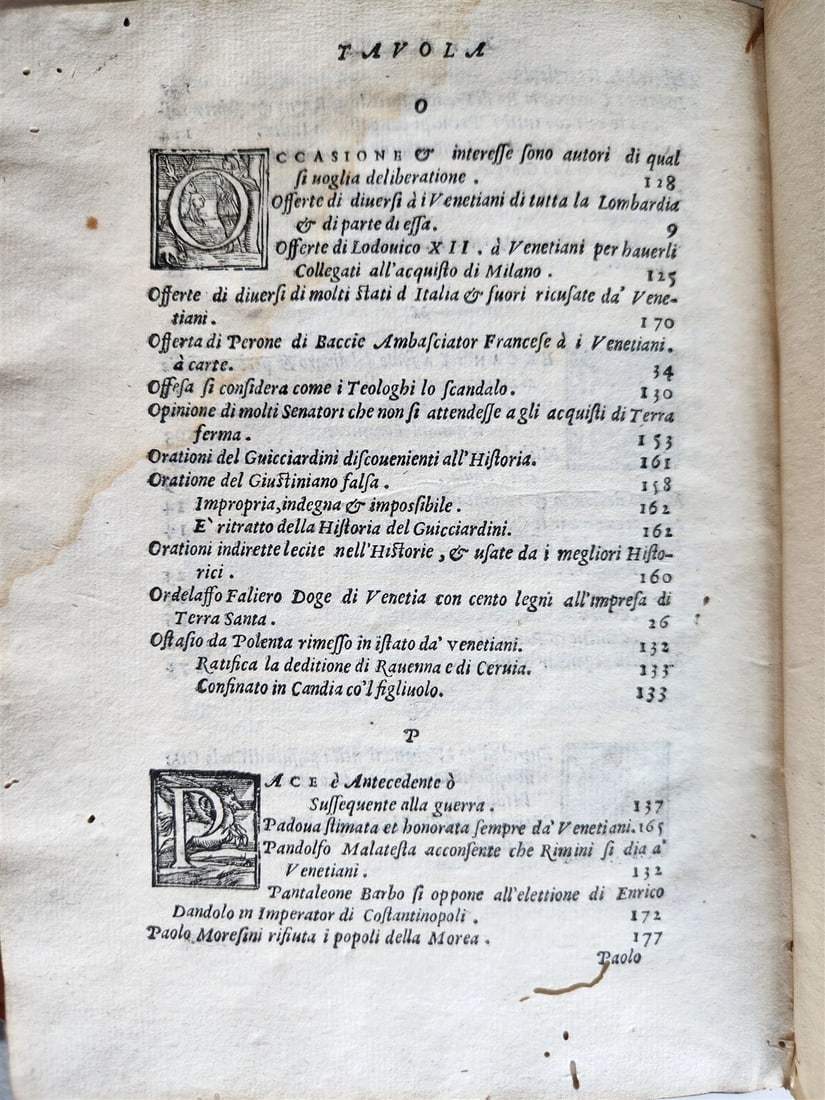 TAVOLA
O
OCCASIONE & intereſſe ſono autori di qual
ſi uoglia deliberatione. 128
Offerte di diuerſi à i Venetiani di tutta la Lombardia
& di parte di eſſa. 9
Offerte di Lodouico XII. à Venetiani per hauerli
Collegati all'acquiſto di Milano. 125
Offerte di diuerſi di molti ſtati d Italia & fuori ricuſate da' Vene-
tiani. 170
Offerta di Perone di Baccie Ambaſciator Franceſe à i Venetiani.
à carte. 34
Offeſa ſi conſidera come i Teologhi lo ſcandalo. 130
Opinione di molti Senatori che non ſi attendeſſe agli acquiſti di Terra
ferma. 153
Orationi del Guicciardini diſcouenienti all'Hiſtoria. 161
Oratione del Giuſtiniano falſa. 158
Impropria, indegna & impoſsibile. 162
E` ritratto della Hiſtoria del Guicciardini. 162
Orationi indirette lecite nell'Hiſtorie, & uſate da i megliori Hiſto-
rici. 160
Ordelaffo Faliero Doge di Venetia con cento legni all'impreſa di
Terra Santa. 26
Oſtaſio da Polenta rimeſſo in iſtato da' venetiani. 132
Ratifica la deditione di Rauenna e di Ceruia. 133
Confinato in Candia co'l figliuolo. 133
P
PACE è Antecedente ò
Suſſequente alla guerra. 137
Padoua ſtimata et honorata ſempre da' Venetiani. 165
Pandolfo Malateſta acconſente che Rimini ſi dia a'
Venetiani. 132
Pantaleone Barbo ſi oppone all'elettione di Enrico
Dandolo in Imperator di Coſtantinopoli. 172
Paolo Moreſini rifiuta i popoli della Morea. 177
Paolo